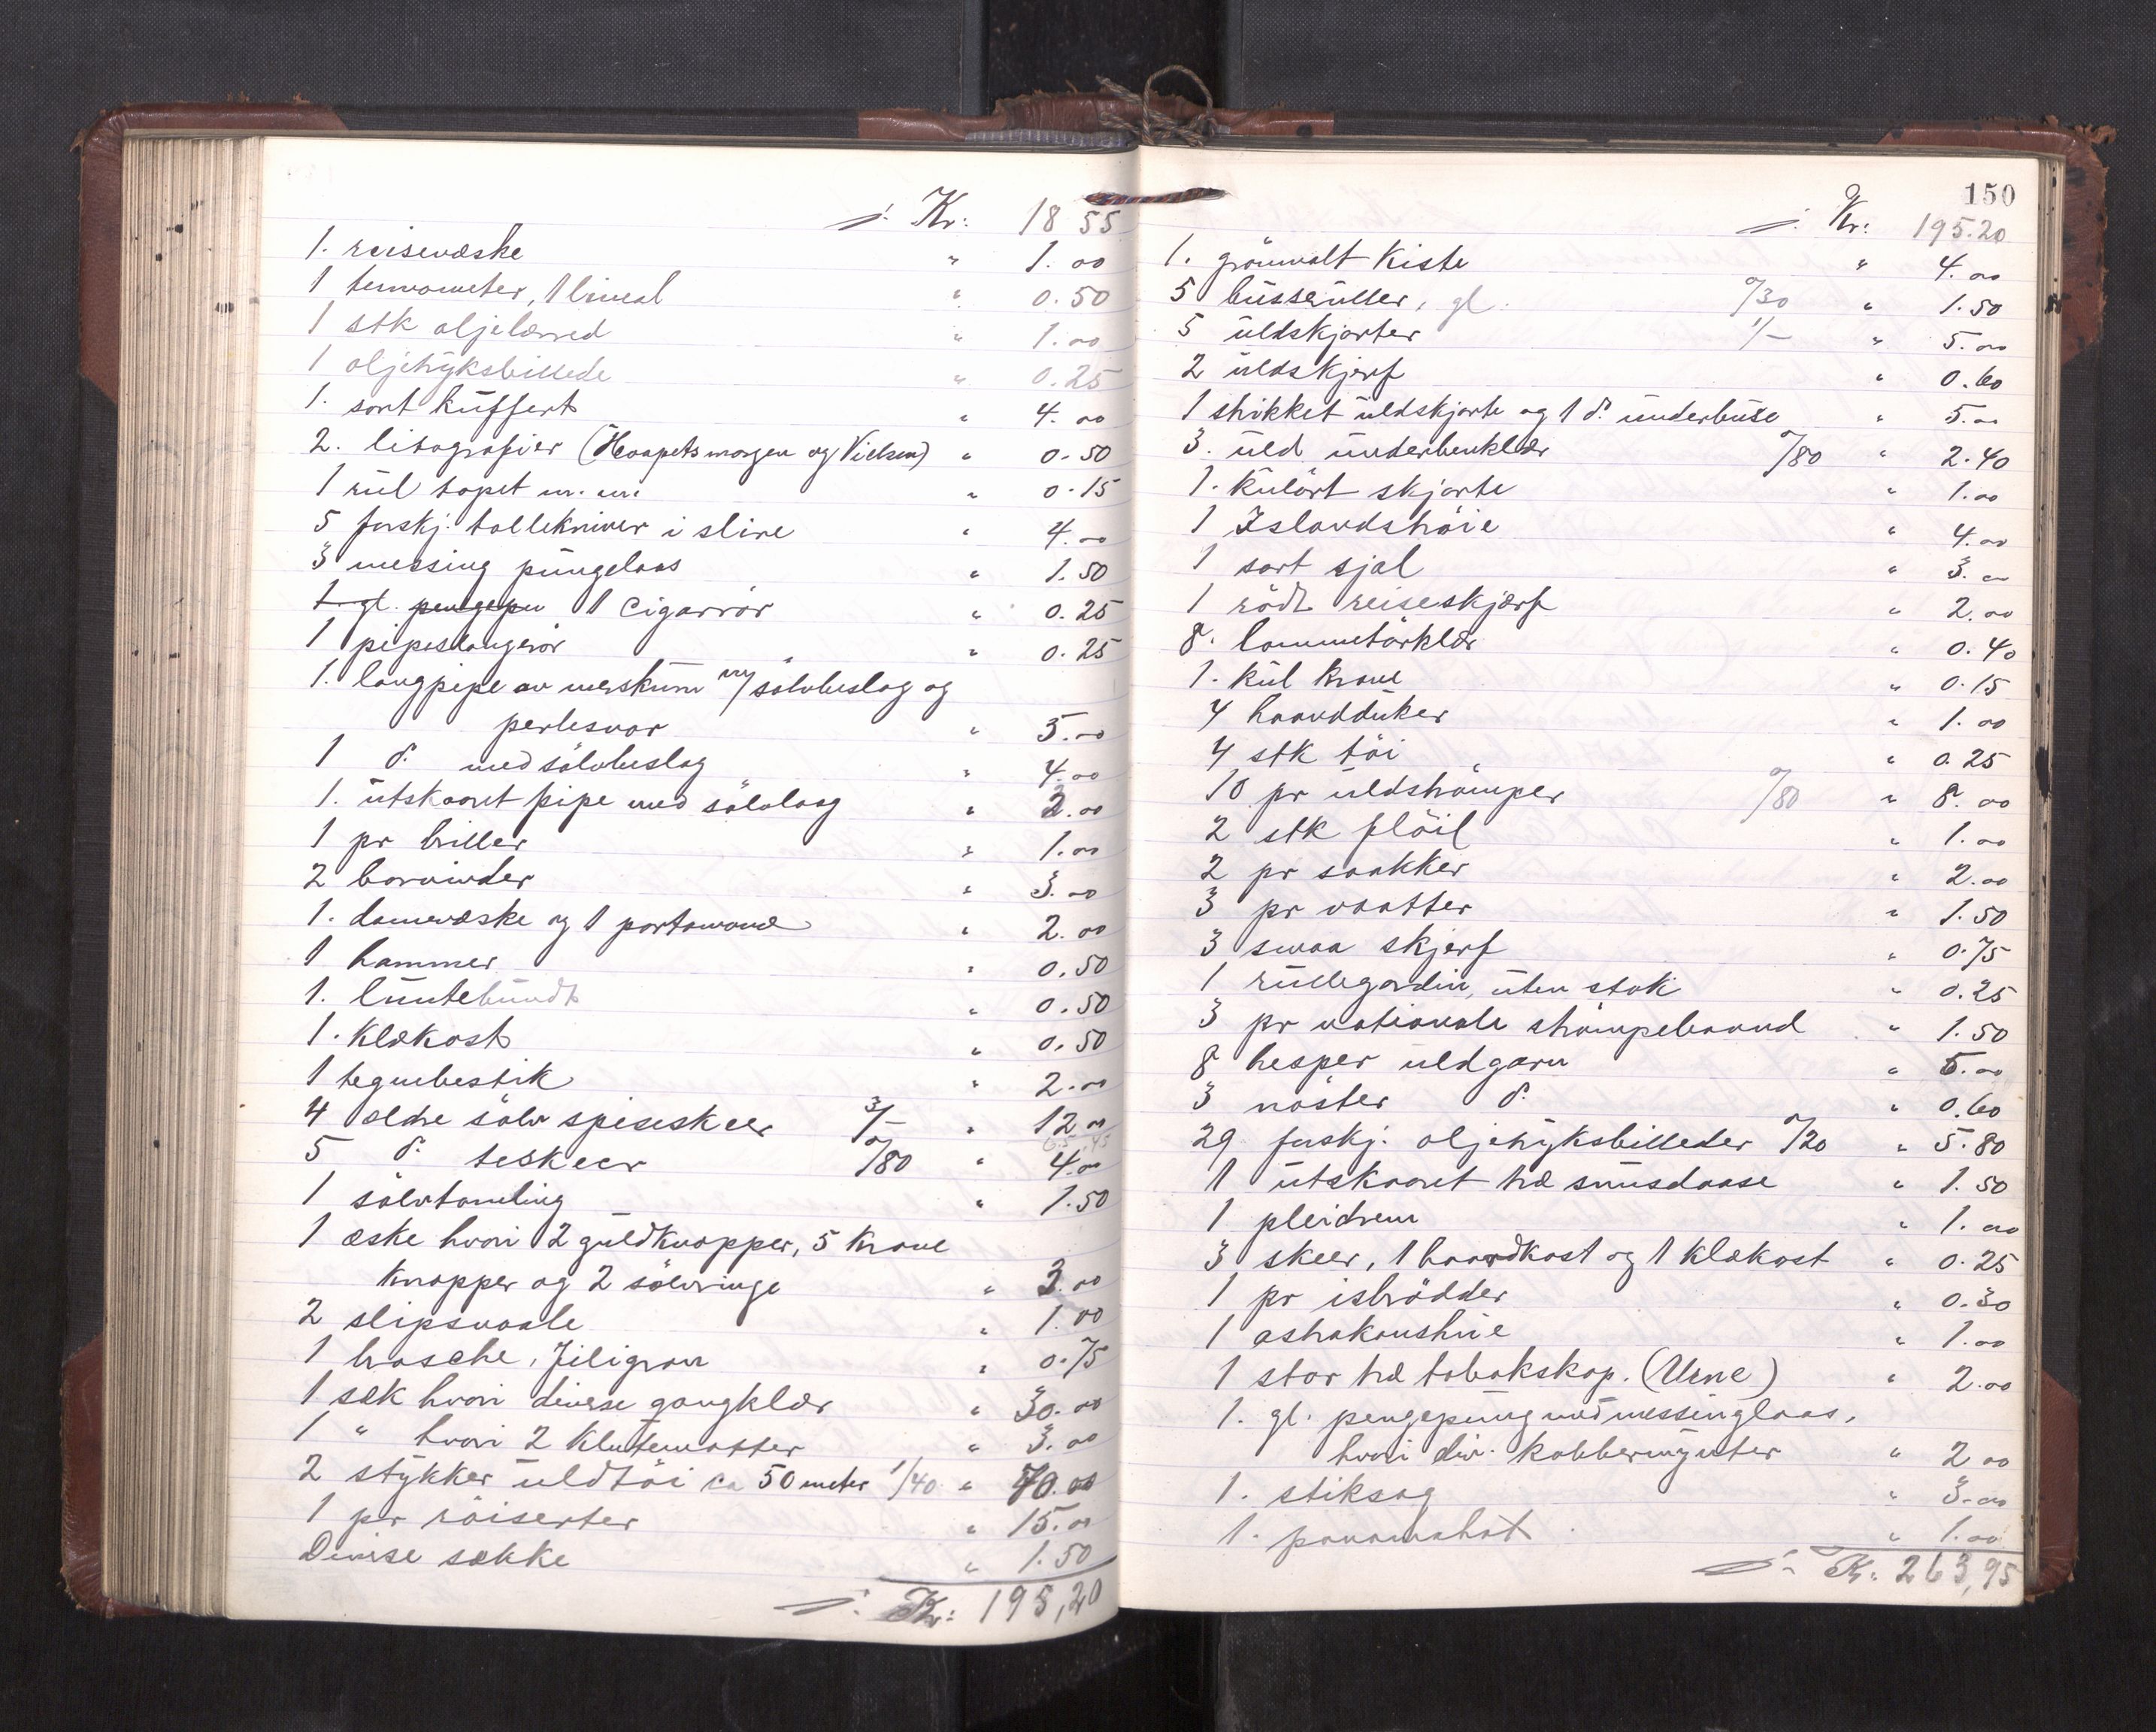 j. Kr: 18 55
1. reisevæske " 1.00
1 termometer, 1 lineal " 0.50
1 stk oljelærred " 1.00
1 oljetryksbillede " 0.25
1. sort kuffert " 4.00
2. litografier (Haapets morgen og Vielsen) " 0.50
1 rul tapet m. m. " 0.15
5 forskj. tollekniver i slire " 4.00
3 messing pungelaas " 1.50
1 gl. pengepu 1 cigarrør " 0.25
1 pipeslangerør " 0.25
1. langpipe av merskum m/ sølvbeslag og
perlesnor " 5.00
1 d. med sølvbeslag " 4.00
1. utskaaret pipe med sølvlaag " 2.00
1 pr briller " 1.00
2 borvinder " 3.00
1. damevæske og 1 portomonæ " 2.00
1 hammer " 0.50
1. luntebundt " 0.50
1. klækost " 0.50
1 tegnebestik " 2.00
4 ældre sølv spiseskeer 3/- " 12.00
5 d. teskeer 0/80 " 4.00
1 sølvtomling " 1.50
1 æske hvori 2 guldknapper, 5 krave
knapper og 2 sølvringe " 3.00
2 slipsnaale " 1.00
1 brosche, Filigran " 0.75
1 sæk hvori diverse gangklær " 30.00
1 " hvori 2 klutematter " 3.00
2 stykker uldtøi ca 50 meter 1/40 " 70.00
1 pr røiserter " 15.00
Diverse sække " 1.50
j. Kr: 195,20
150
j. Kr: 195.20
1. grønmalt kiste " 4.00
5 busseruller, gl. 0/30 " 1.50
5 uldskjorter 1/- " 5.00
2 uldskjerf " 0.60
1 strikket uldskjorte og 1 d. underbuse " 5.00
3. uld underbenklær 0/80 " 2.40
1. kulørt skjorte " 1.00
1 Islandstrøie " 4.00
1 sort sjal " 3.00
1 rødt reiseskjærf " 2.00
8. lommetørklær " 0.40
1. kul krave " 0.15
4 haandduker " 1.00
4 stk tøi " 0.25
10 pr uldstrømper 0/80 " 8.00
2 stk fløil " 1.00
2 pr saakker " 2.00
3 pr vaatter " 1.50
3 smaa skjerf " 0.75
1 rullegardin, uten stok " 0.25
3 pr nationale strømpebaand " 1.50
8 hesper uldgarn " 5.00
3 nøster d. " 0.60
29 forskj. oljetryksbilleder 0/20 " 5.80
1 utskaaret træ snusdaase " 1.50
1 pleidrem " 1.00
3 skeer, 1 haandkost og 1 klækost " 0.25
1 pr isbrødder " 0.30
1 astrakanshue " 1.00
1 stor træ tobakskop. (Urne) " 2.00
1. gl. pengepung med messinglaas,
hvori div. kobbermynter " 2.00
1. stiksag " 3.00
1. panamahat " 1.00
j. Kr. 263,95